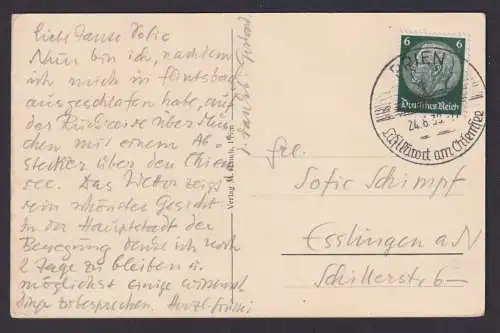 Liebe Tante Sofie
Nun bin ich, nachdem
ich mich in Flintsbach
ausgeschlafen habe, auf
der Rückreise über Mün-
chen mit einem Ab-
stecher über den Chiem-
see. Das Wetter zeigt
sein schönstes Gesicht.
In der Hauptstadt der
Bewegung denke ich noch
2 Tage zu bleiben u.
möglichst einige
Dinge zu besprechen. Herzl.
Verlag
6
6
Deutsches Reich
PRIEN
24.6.35
Luftkurort am Chiemsee
Frl.
Sofie Schimpf
Esslingen a N
Schillerstr 6